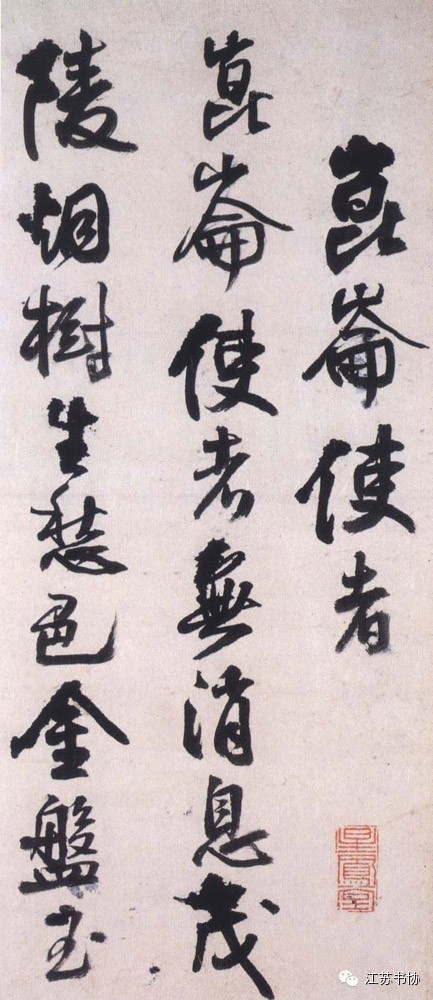 崑崙使者
崑崙使者無消息茂
陵烟樹生愁色金盤玉
江苏书协